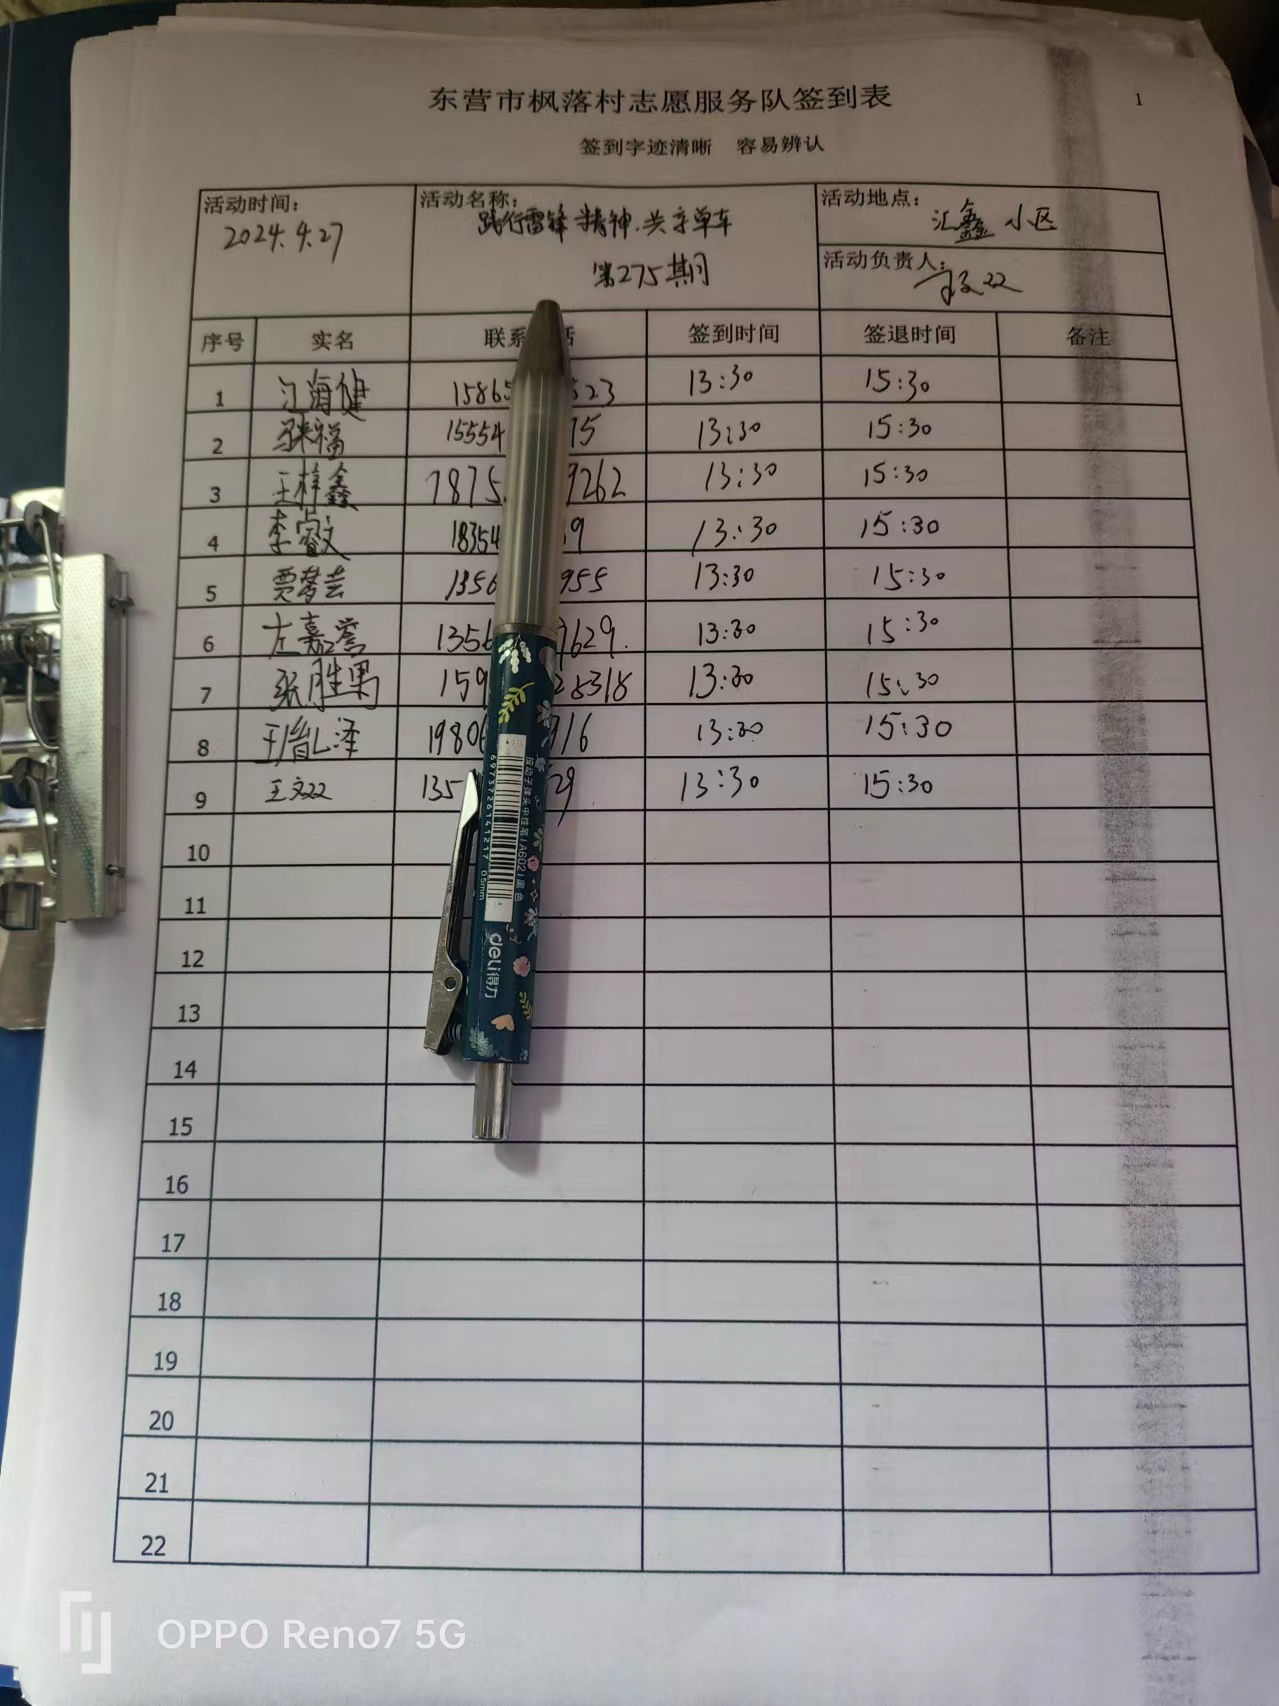 东营市枫落村志愿服务队签到表
1
签到字迹清晰 容易辨认
活动时间: 2024.4.27
活动名称: 践行雷锋精神.共享单车
第275期
活动地点: 汇鑫小区
活动负责人:
序号 实名 联系 话 签到时间 签退时间 备注
1 江海健 1586 523 13:30 15:30
2 福 15554 15 13:30 15:30
3 王梓鑫 1875 9262 13:30 15:30
4 李睿文 18354 9 13:30 15:30
5 贾梦芸 1356 955 13:30 15:30
6 左嘉 1356 7629. 13:30 15:30
7 张胜男 159 28318 13:30 15:30
8 王 泽 1980 916 13:30 15:30
9 王文 135 29 13:30 15:30
10
11
12
13
14
15
16
17
18
19
20
21
22
按动子弹头中性笔/A602/黑色
6973726141217 0.5mm
deli得力
OPPO Reno7 5G